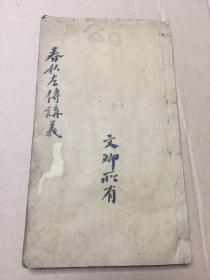 春秋左傳講義
文卿所有